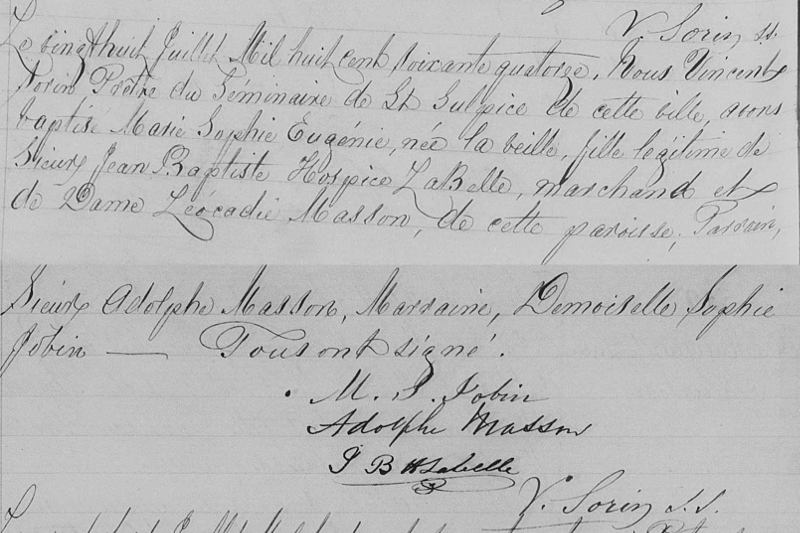 V. Sorin s.s.
Le vingt huit Juillet Mil huit cent soixante quatorze, Nous Vincent
Sorin Prêtre du Seminaire de St Sulpice de cette ville, avons
baptisé Marie Sophie Eugénie, née la veille, fille legitime de
Sieur Jean Baptiste Hospice LaBelle, marchand et
de Dame Léocadie Masson, de cette paroisse; Parrain,
Sieur Adolphe Masson, Marraine, Demoiselle Sophie
Jobin — Tous ont signé.
M. S. Jobin
Adolphe Masson
J B H Labelle
V. Sorin s.s.